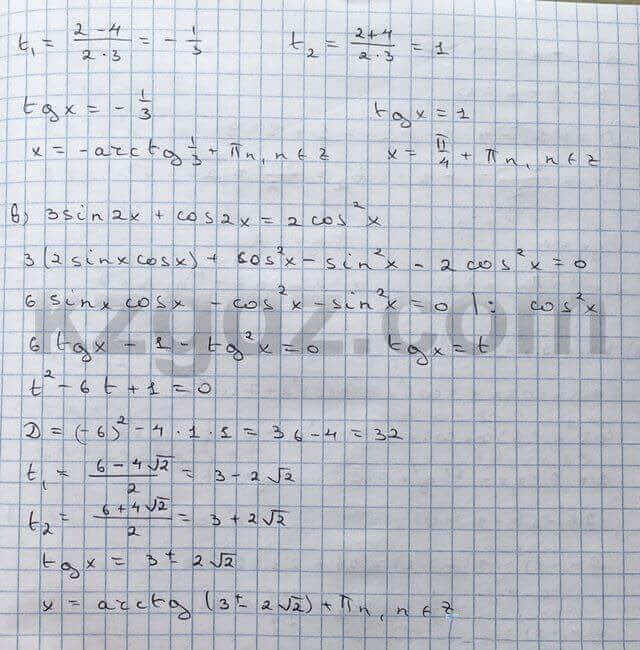 t₁ = (2 - 4)/(2 · 3) = - 1/3     t₂ = (2+4)/(2 · 3) = 1
tg x = - 1/3     tg x = 1
x = -arctg 1/3 + πn, n ∈ Z     x = π/4 + πn, n ∈ Z
в) 3 sin 2x + cos 2x = 2 cos² x
3 (2 sin x cos x) + cos² x - sin² x - 2 cos² x = 0
6 sin x cos x - cos² x - sin² x = 0 | : cos² x
kzgdz.com
6 tg x - 1 - tg² x = 0     tg x = t
t² - 6t + 1 = 0
D = (-6)² - 4 · 1 · 1 = 36 - 4 = 32
t₁ = (6 - 4√2)/2 = 3 - 2√2
t₂ = (6 + 4√2)/2 = 3 + 2√2
tg x = 3 ± 2√2
x = arctg (3 ± 2√2) + πn, n ∈ Z